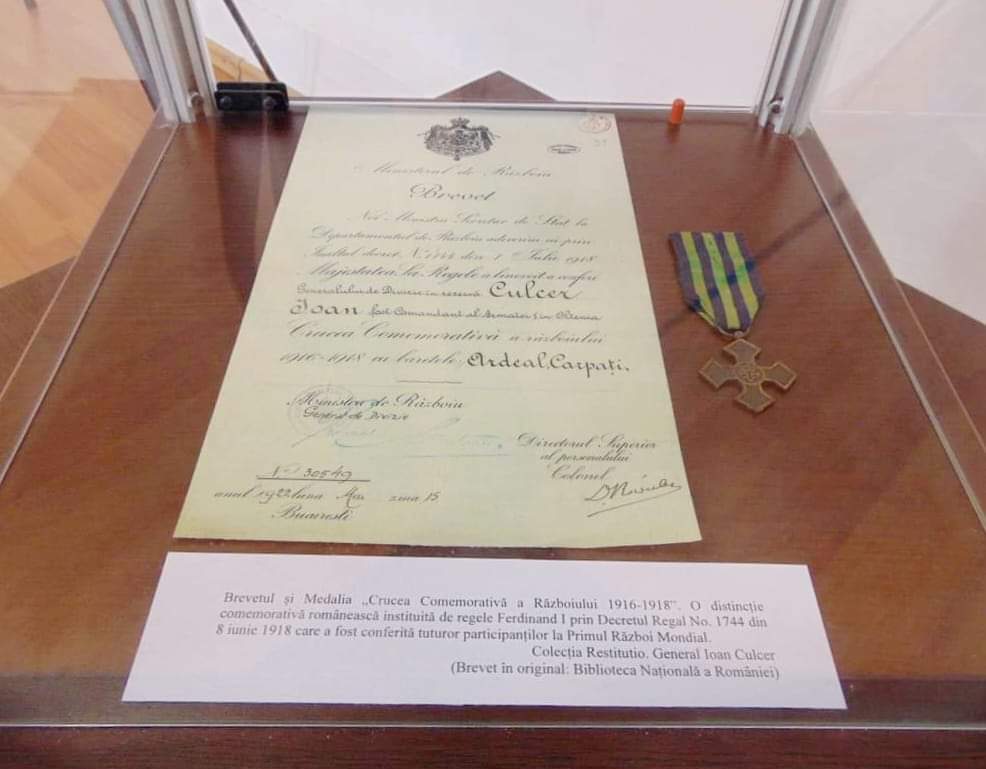 Ministerul de Războiu
Brevet
Noi Ministru Secretar de Stat la
Departamentul de Războiu adeverim că prin
Înaltul decret No. 1744 din 1 Iulie 1918
Majestatea Sa Regele a binevoit a conferi
Generalului de Divizie în rezervă Culcer
Ioan fost Comandant al Armatei I în Oltenia
Crucea Comemorativă a războiului
1916-1918 cu baretele, Ardeal, Carpați.
Ministru de Războiu
General de Divizie
Directorul Superior
al personalului
Colonel
No. 30549
anul 1922 luna Mai ziua 15
Bucuresti
Brevetul și Medalia „Crucea Comemorativă a Războiului 1916-1918”. O distincție
comemorativă românească instituită de regele Ferdinand I prin Decretul Regal No. 1744 din
8 iunie 1918 care a fost conferită tuturor participanților la Primul Război Mondial.
Colecția Restitutio. General Ioan Culcer
(Brevet în original: Biblioteca Națională a României)